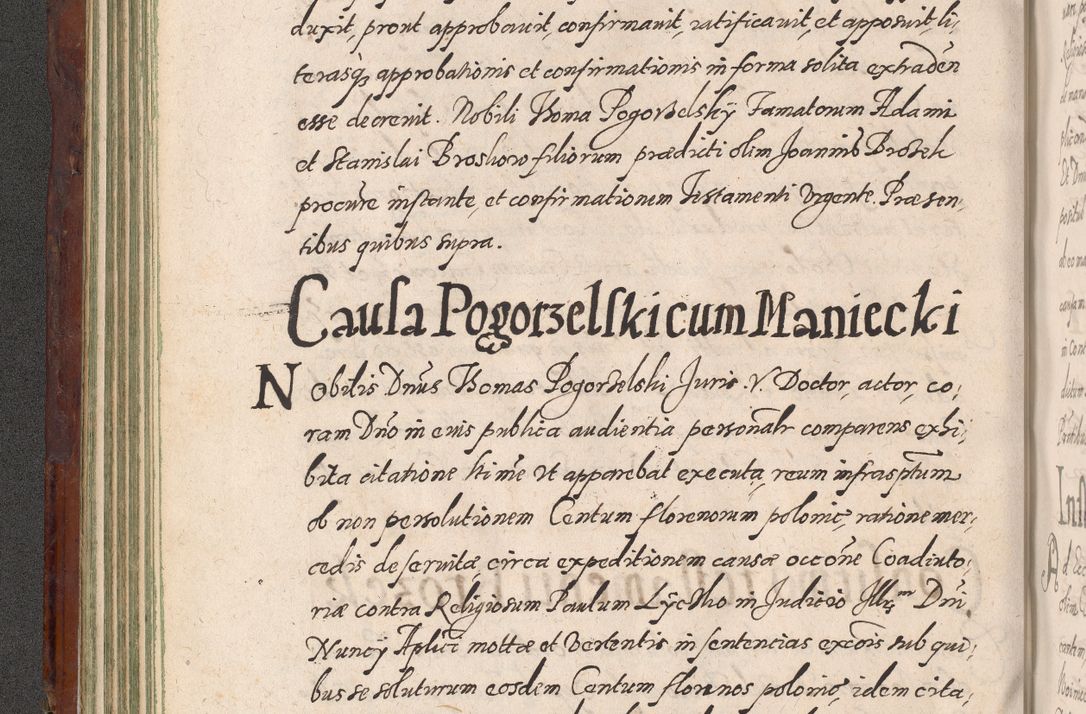 duxit, prout approbavit, confirmavit, ratificavit, et apposuit li,
terasq, approbationis et confirmationis in forma solita extraden
esse decrevit. Nobili Thoma Pogorzelskÿ Famatorum Adami
et Stanislai Broskow filiorum prædicti olim Joannis Brosek
procure instante, et confirmationem Testamenti Vrgente. Præsen,
tibus quibus supra.
Causa Pogorzelski cum Maniecki
Nobilis Dnus Thomas Pogorzelski Juris V. Doctor, actor, co,
ram Dno in eius publica audientia personalr comparens exhi,
bita citatione ltime ut apparebat executa, reum infrasptum
ob non persolutionem Centum florenorum polonic, ratione mer,
cedis deservitæ, circa expeditionem causæ occone Coadiuto,
riæ contra Religiosum Paulum Lyczko in Judicio Illmi Dni
Nuncÿ Aplici mottæ et vertentis in sentencias excois sub qui,
bus se soluturum eosdem Centum florenos polonic, idem cita,